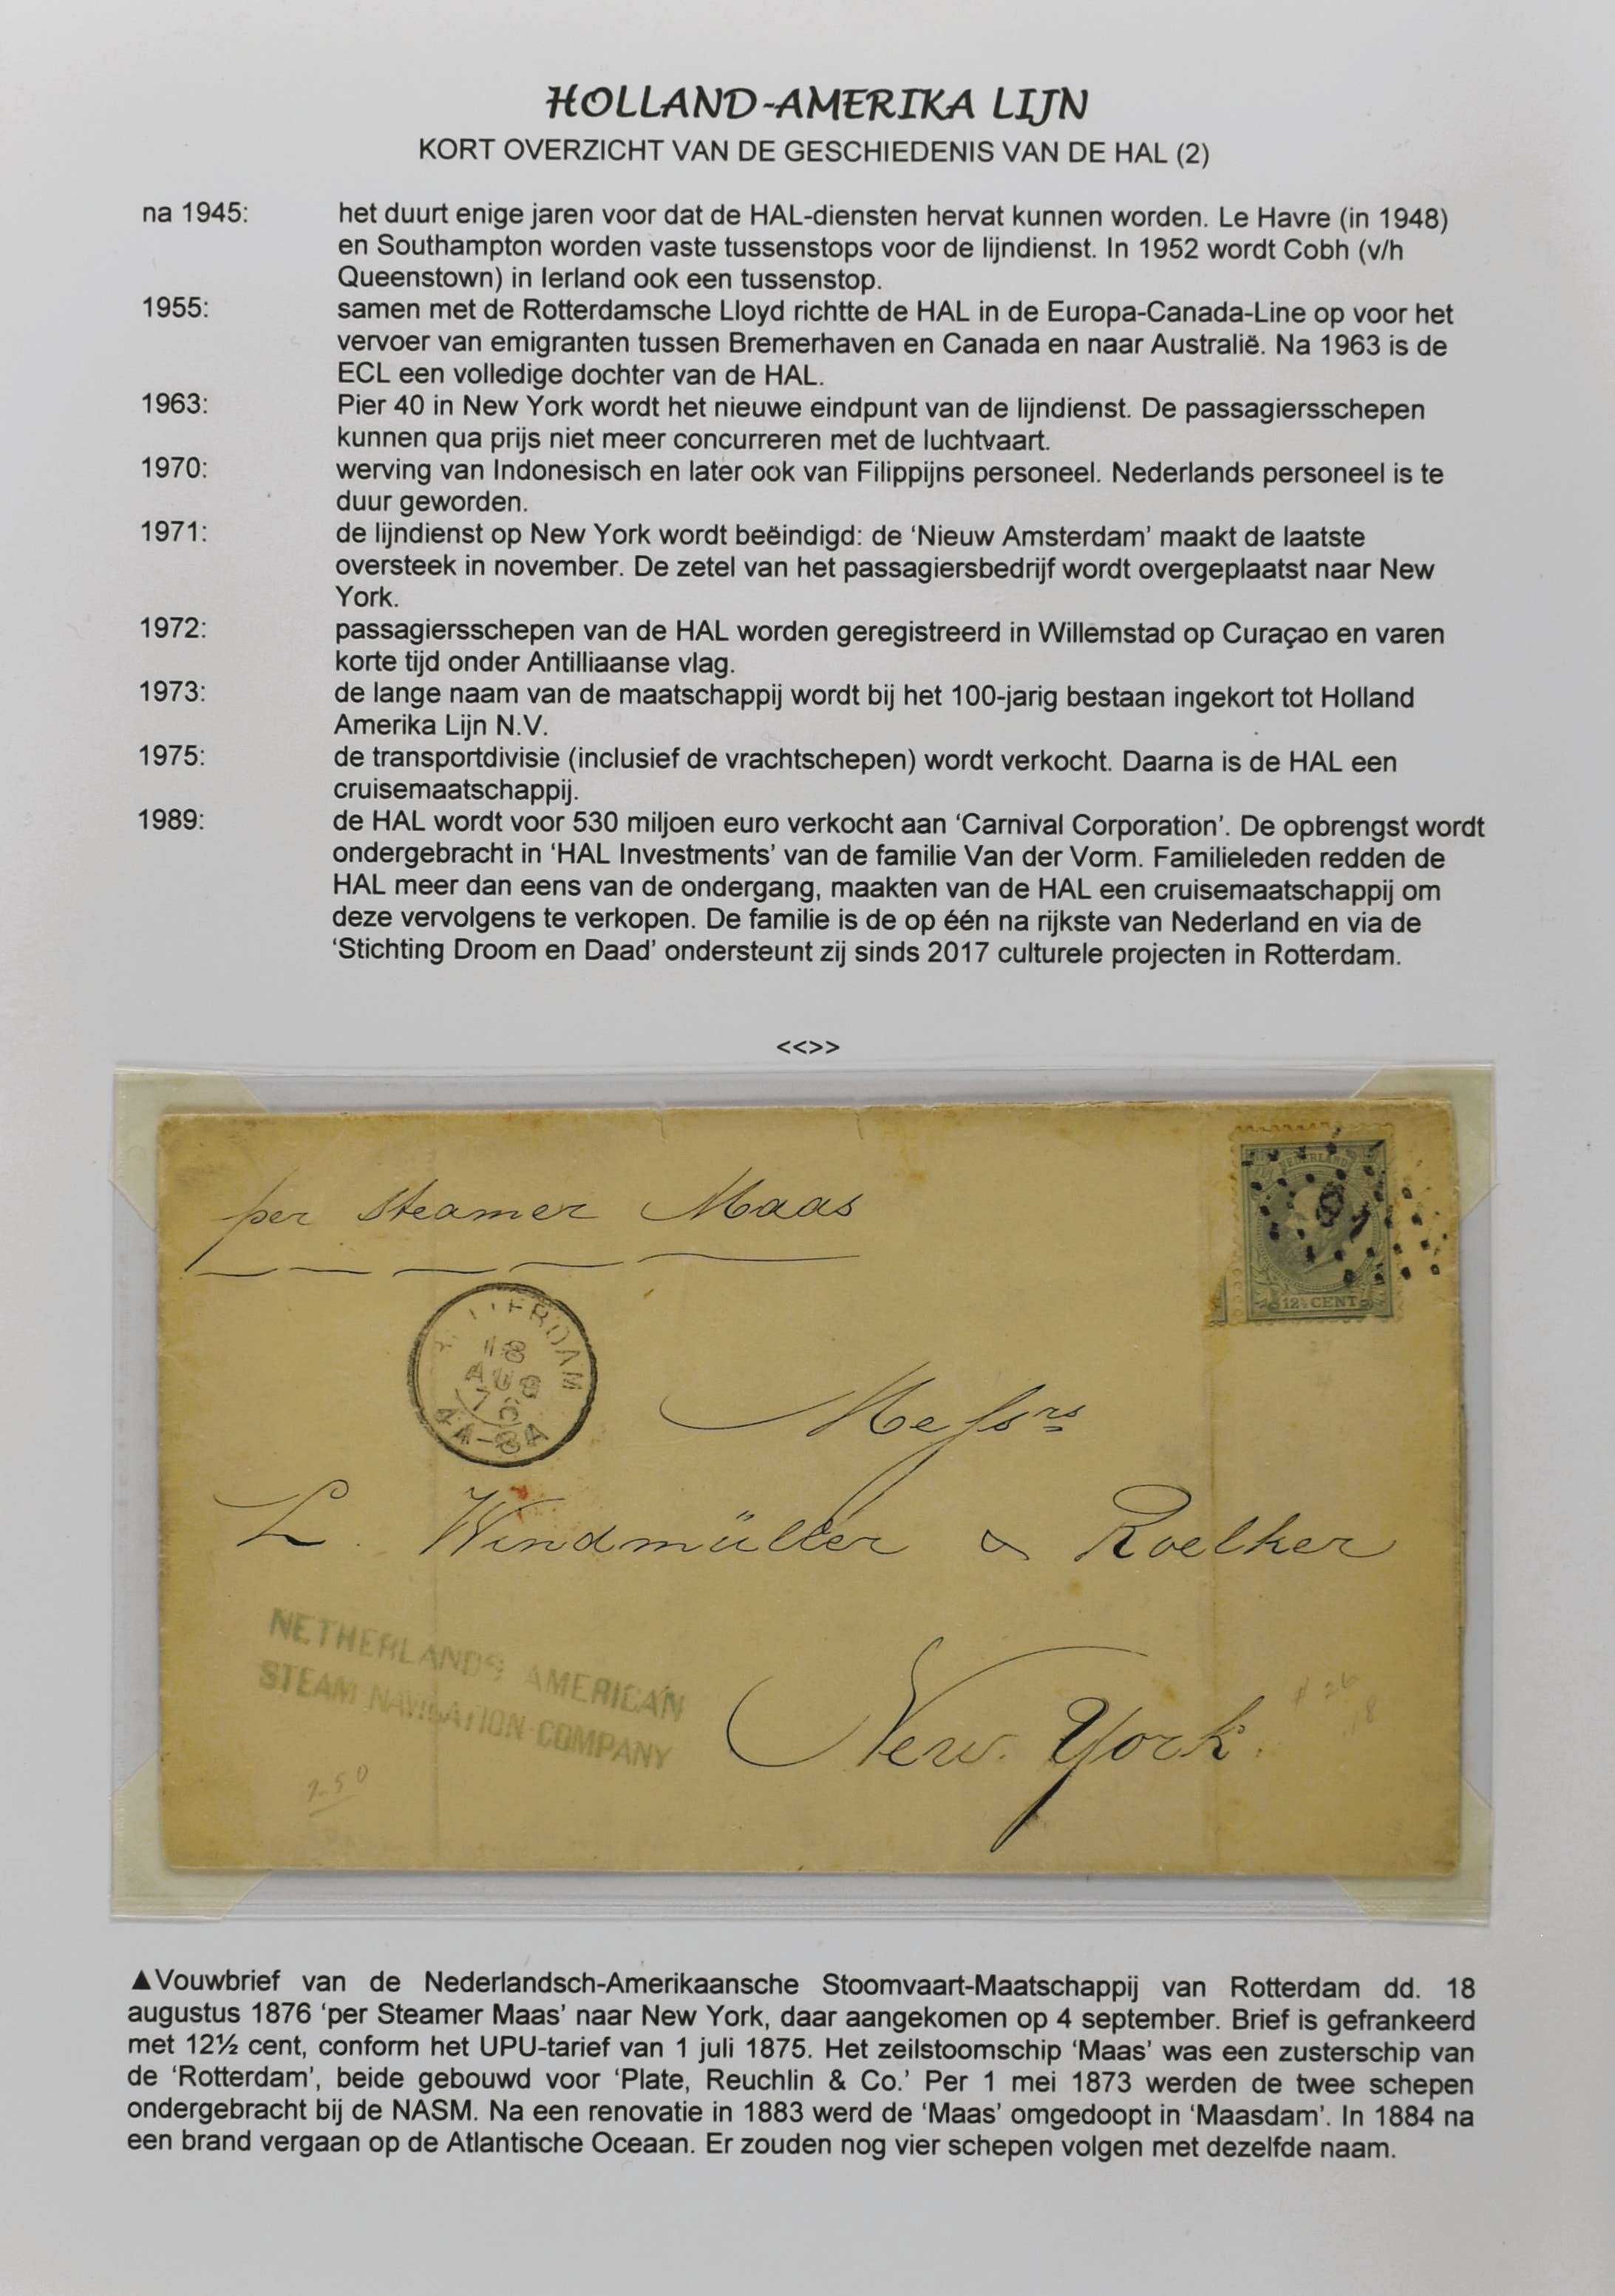 HOLLAND-AMERIKA LIJN
KORT OVERZICHT VAN DE GESCHIEDENIS VAN DE HAL (2)
na 1945: het duurt enige jaren voor dat de HAL-diensten hervat kunnen worden. Le Havre (in 1948)
en Southampton worden vaste tussenstops voor de lijndienst. In 1952 wordt Cobh (v/h
Queenstown) in Ierland ook een tussenstop.
1955: samen met de Rotterdamsche Lloyd richtte de HAL in de Europa-Canada-Line op voor het
vervoer van emigranten tussen Bremerhaven en Canada en naar Australië. Na 1963 is de
ECL een volledige dochter van de HAL.
1963: Pier 40 in New York wordt het nieuwe eindpunt van de lijndienst. De passagiersschepen
kunnen qua prijs niet meer concurreren met de luchtvaart.
1970: werving van Indonesisch en later ook van Filippijns personeel. Nederlands personeel is te
duur geworden.
1971: de lijndienst op New York wordt beëindigd: de ‘Nieuw Amsterdam’ maakt de laatste
oversteek in november. De zetel van het passagiersbedrijf wordt overgeplaatst naar New
York.
1972: passagiersschepen van de HAL worden geregistreerd in Willemstad op Curaçao en varen
korte tijd onder Antilliaanse vlag.
1973: de lange naam van de maatschappij wordt bij het 100-jarig bestaan ingekort tot Holland
Amerika Lijn N.V.
1975: de transportdivisie (inclusief de vrachtschepen) wordt verkocht. Daarna is de HAL een
cruisemaatschappij.
1989: de HAL wordt voor 530 miljoen euro verkocht aan ‘Carnival Corporation’. De opbrengst wordt
ondergebracht in ‘HAL Investments’ van de familie Van der Vorm. Familieleden redden de
HAL meer dan eens van de ondergang, maakten van de HAL een cruisemaatschappij om
deze vervolgens te verkopen. De familie is de op één na rijkste van Nederland en via de
‘Stichting Droom en Daad’ ondersteunt zij sinds 2017 culturele projecten in Rotterdam.
<<>>
per Steamer Maas
NEDERLAND
91
12½ CENT
ROTTERDAM
18
AUG
76
4A-8A
Messrs
L. Windmüller & Roelker
New York.
NETHERLANDS AMERICAN
STEAM NAVIGATION COMPANY
▲Vouwbrief van de Nederlandsch-Amerikaansche Stoomvaart-Maatschappij van Rotterdam dd. 18
augustus 1876 ‘per Steamer Maas’ naar New York, daar aangekomen op 4 september. Brief is gefrankeerd
met 12½ cent, conform het UPU-tarief van 1 juli 1875. Het zeilstoomschip ‘Maas’ was een zusterschip van
de ‘Rotterdam’, beide gebouwd voor ‘Plate, Reuchlin & Co.’ Per 1 mei 1873 werden de twee schepen
ondergebracht bij de NASM. Na een renovatie in 1883 werd de ‘Maas’ omgedoopt in ‘Maasdam’. In 1884 na
een brand vergaan op de Atlantische Oceaan. Er zouden nog vier schepen volgen met dezelfde naam.